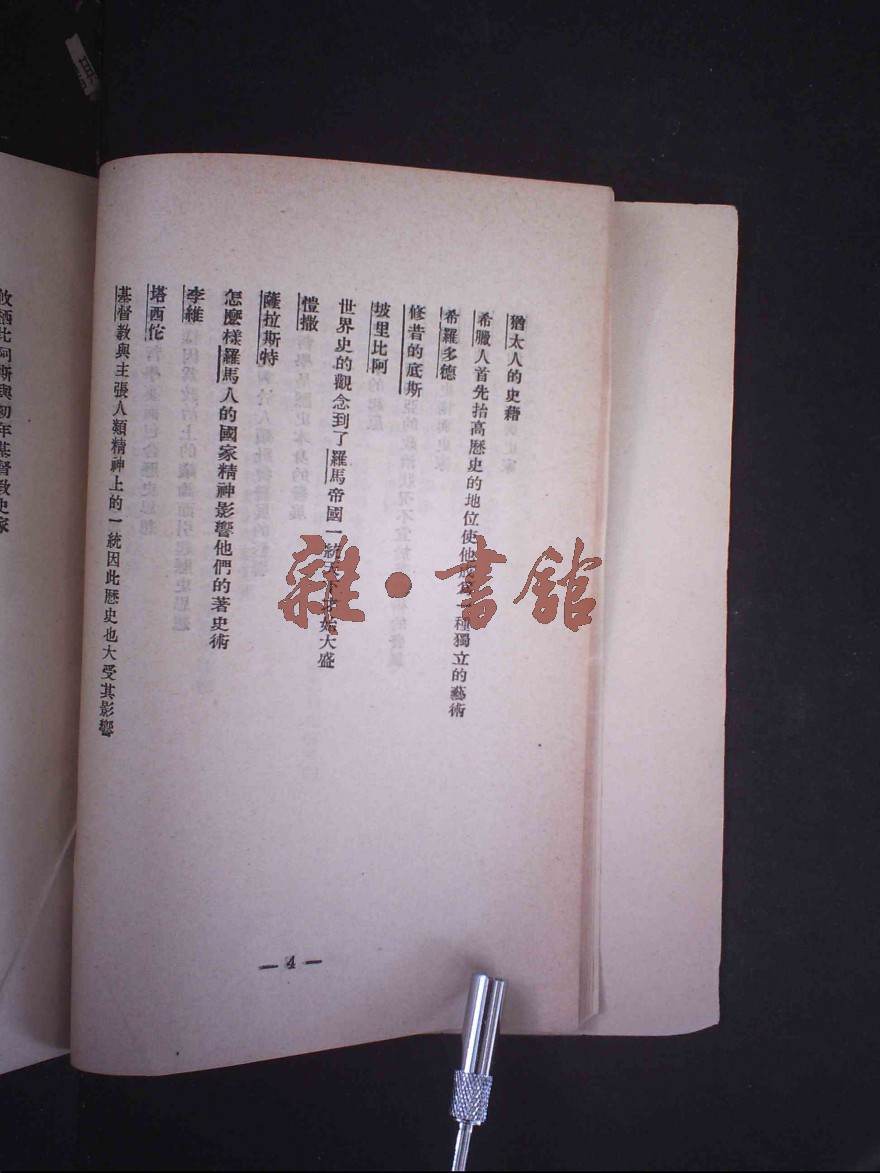 猶太人的史藉
希臘人首先抬高歷史的地位使他成爲一種獨立的藝術
希羅多德
修昔的底斯
坡里比阿
世界史的觀念到了羅馬帝國一統天下才始大盛
愷撒
薩拉斯特
怎麼樣羅馬人的國家精神影響他們的著史術
李維
塔西佗
基督教與主張人類精神上的一統因此歷史也大受其影響
攸栖比阿斯與初年基督教史家
— 4 —
雜·書館